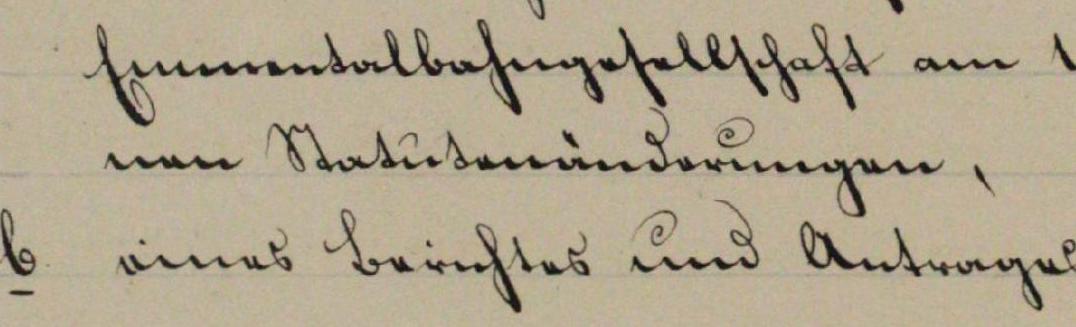 Emmentalbahngesellschaft am 1
nen Statutenänderungen,
b eines Berichtes und Antrages